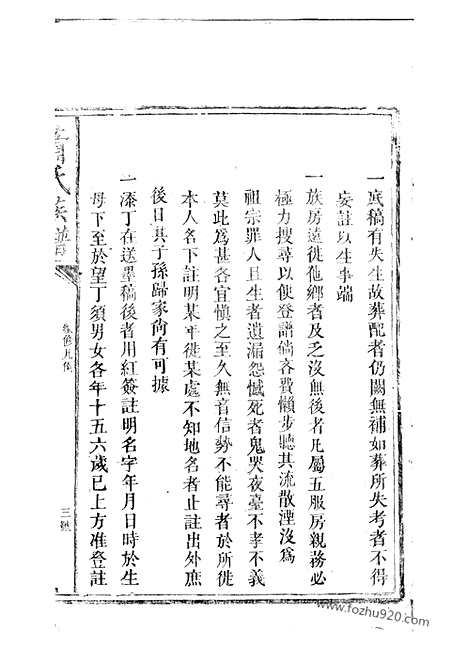 一底稿有失生故葬配者仍闕無補如葬所失考者不得
妄註以生事端
一族房遠徙他鄉者及乏沒無後者凡屬五服房親務必
極力搜尋以便登譜倘吝費懶步聽其流散湮沒為
祖宗罪人且生者遺漏怨憾死者鬼哭夜臺不孝不義
莫此爲甚各宜慎之至久無音信勢不能尋者於所徙
本人名下註明某年徙某處不知地名者止註出外庶
後日其子孫歸家尚有可據
一添丁在送墨稿後者用紅簽註明名字年月日時於生
母下至於望丁須男女各年十五六歲已上方准登註
氏族譜
修凡例
三
www.fozhu920.com